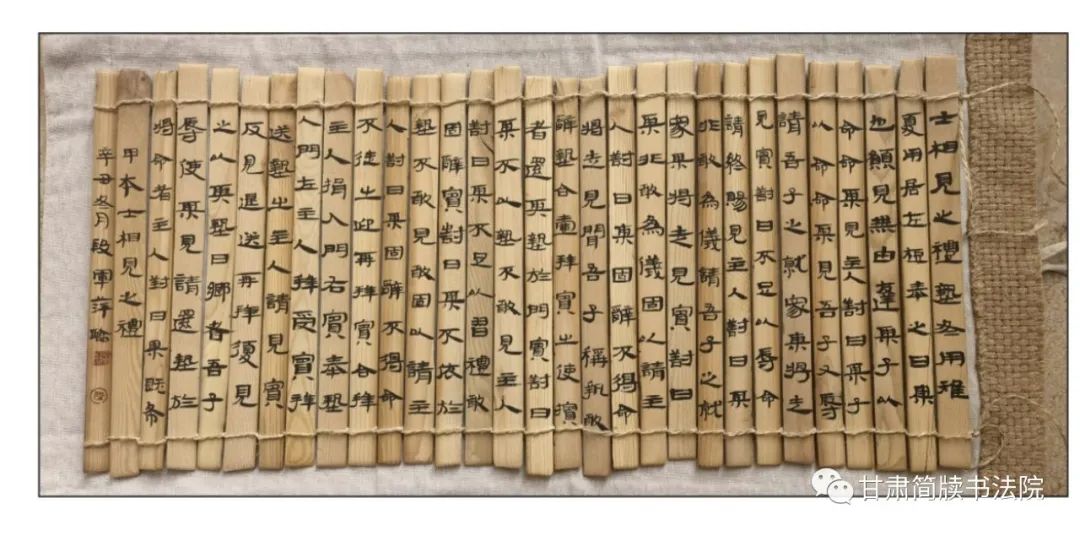 士相見之禮墊冬用雉
夏用居左梪奉之曰某
也願見無由達某子以
命命某見主人對曰某子
以命命某見吾子又辱
請吾子之就家某將走
見賓對曰不足以辱命
請終賜見主人對曰某
非敢為儀請吾子之就
家某將走見賓對曰
某非敢為儀固以請主
人對曰某固辭不得命
將走見聞吾子稱執敢
辭墊合壹拜賓出使擯
者還其墊於門賓對曰
某不以墊不敢見主人
對曰某不足以習禮敢
固辭賓對曰某不依於
墊不敢見敢固以請主
人對曰某固辭不得命
不從出迎再拜賓合拜
主人揖入門右賓奉墊
入門左主人拜受賓拜
送墊出主人請見賓
反見退送再拜復見
之以其墊曰鄉者吾子
辱使某見請還墊於
將命者主人對曰某既
甲本士相見之禮
辛丑冬月段軍萍臨
甘肃简牍书法院